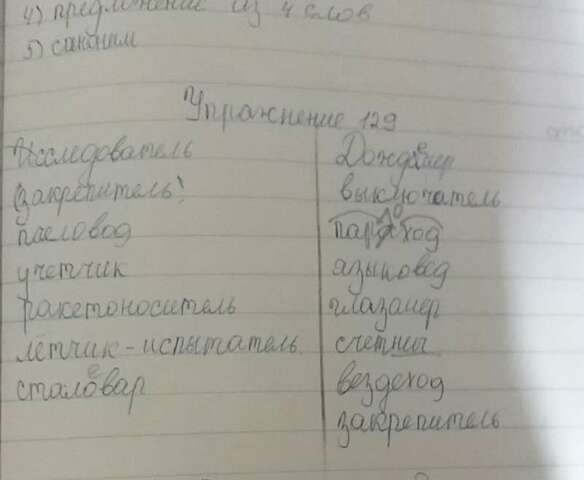 4) предложение из 4 слов
5) синоним
Упражнение 129
Исследователь
(закрепитель)
пчеловод
учетчик
ракетоноситель
лётчик-испытатель
сталевар
Дождемер
выключатель
пароход
языковед
глазамер
счетчик
вездеход
закрепитель